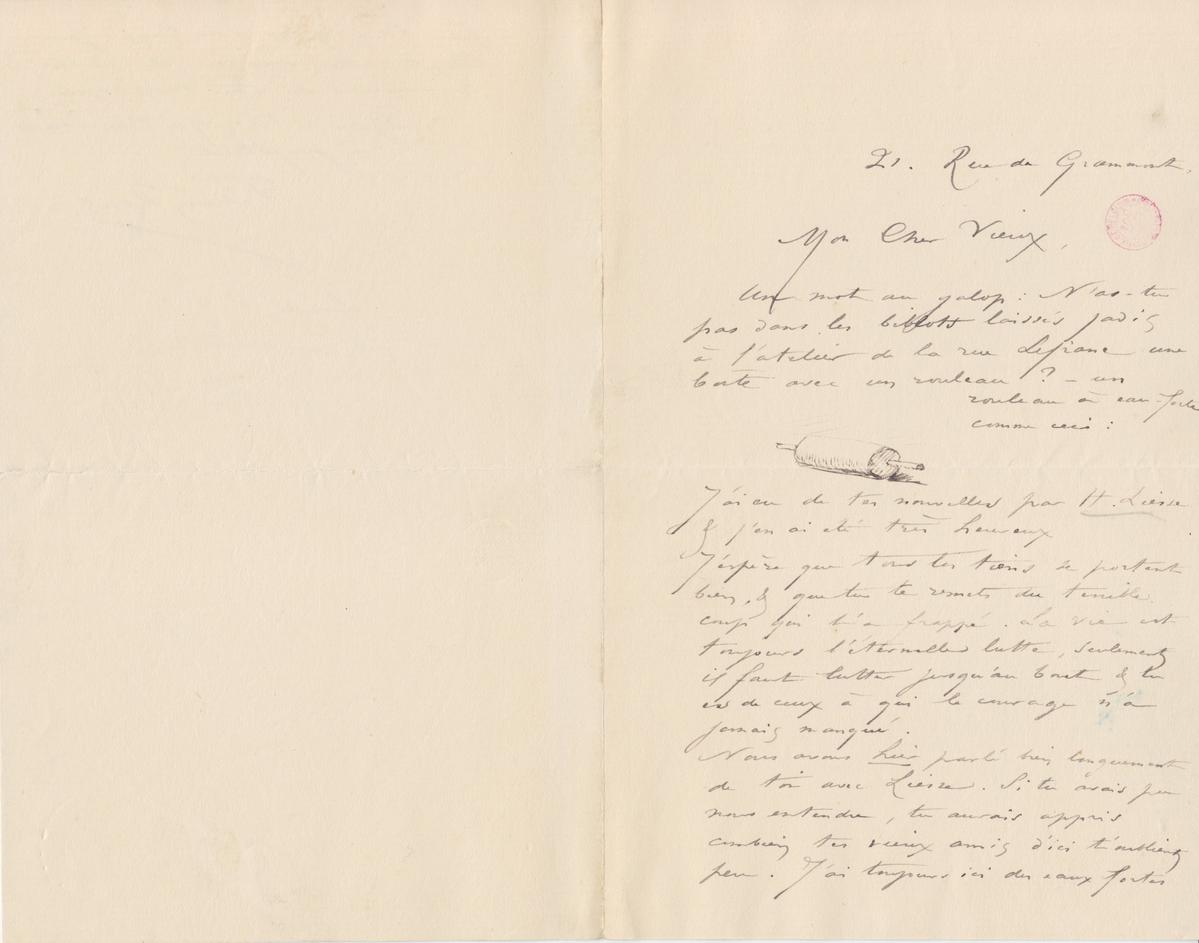 21. Rue de Grammont,
Mon Cher Vieux,
Un mot au galop : N'as-tu
pas dans les bibelots laissés jadis
à l'atelier de la rue Lefranc une
boîte avec un rouleau ? – un
rouleau à eau-forte
comme ceci :
J'ai eu de tes nouvelles par H. Liesse
& j'en ai été très heureux
J'espère que tous les tiens se portent
bien, & que tu te remets du terrible
coup qui t'a frappé. La vie est
toujours l'éternelle lutte, seulement
il faut lutter jusqu'au bout & tu
es de ceux à qui le courage n'a
jamais manqué.
Nous avons hier parlé bien longuement
de toi avec Liesse. Si tu avais pu
nous entendre, tu aurais appris
combien tes vieux amis d'ici t'oublient
peu. J'ai toujours ici des eaux fortes